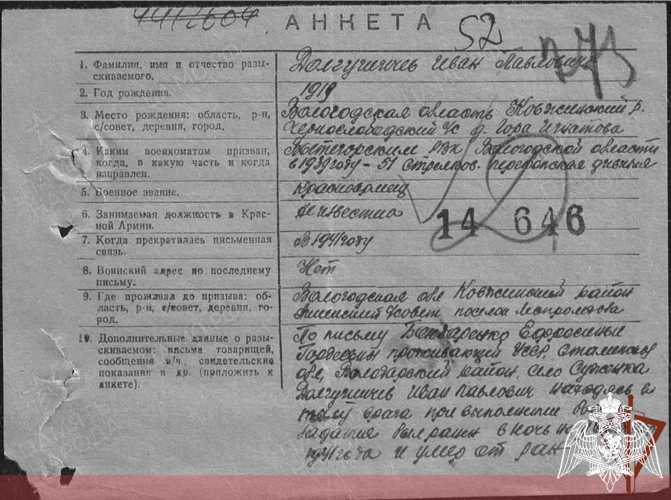 АНКЕТА
52
1. Фамилия, имя и отчество разыскиваемого. Долгушичев Иван Павлович
2. Год рождения. 1919
3. Место рождения: область, р-н, с/совет, деревня, город. Вологодская область Ковжинский р. Чернослободский с/с д. Гора Игнатова
4. Каким военкоматом призван, когда, в какую часть и когда направлен. Вытегорским РВК Вологодской области в 1939 году – 51 стрелков. перекопская дивизия
5. Военное звание. Красноармеец
6. Занимаемая должность в Красной Армии. Неизвестно
14 646
7. Когда прекратилась письменная связь. В 1941 году
8. Воинский адрес по последнему письму. Нет
9. Где проживал до призыва: область, р-н, с/совет, деревня, город. Вологодская обл Ковжинский район сельсовет поселок
10. Дополнительные данные о разыскиваемом: письма товарищей, сообщения в/ч., свидетельские показания и др. (приложить к анкете). По письму Бондаренко Ефросинье
Гордеевны проживающей УССР, Сталинской
обл, Володарский район, село
Долгушичев Иван Павлович находясь в
тылу врага при выполнении
задания был ранен в ночь на
1941 года и умер от ран